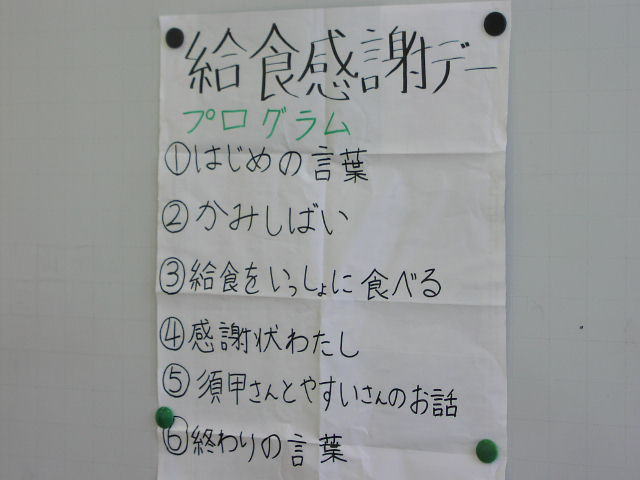 給食感謝デー
プログラム
①はじめの言葉
②かみしばい
③給食をいっしょに食べる
④感謝状わたし
⑤須甲さんとやすいさんのお話
⑥終わりの言葉